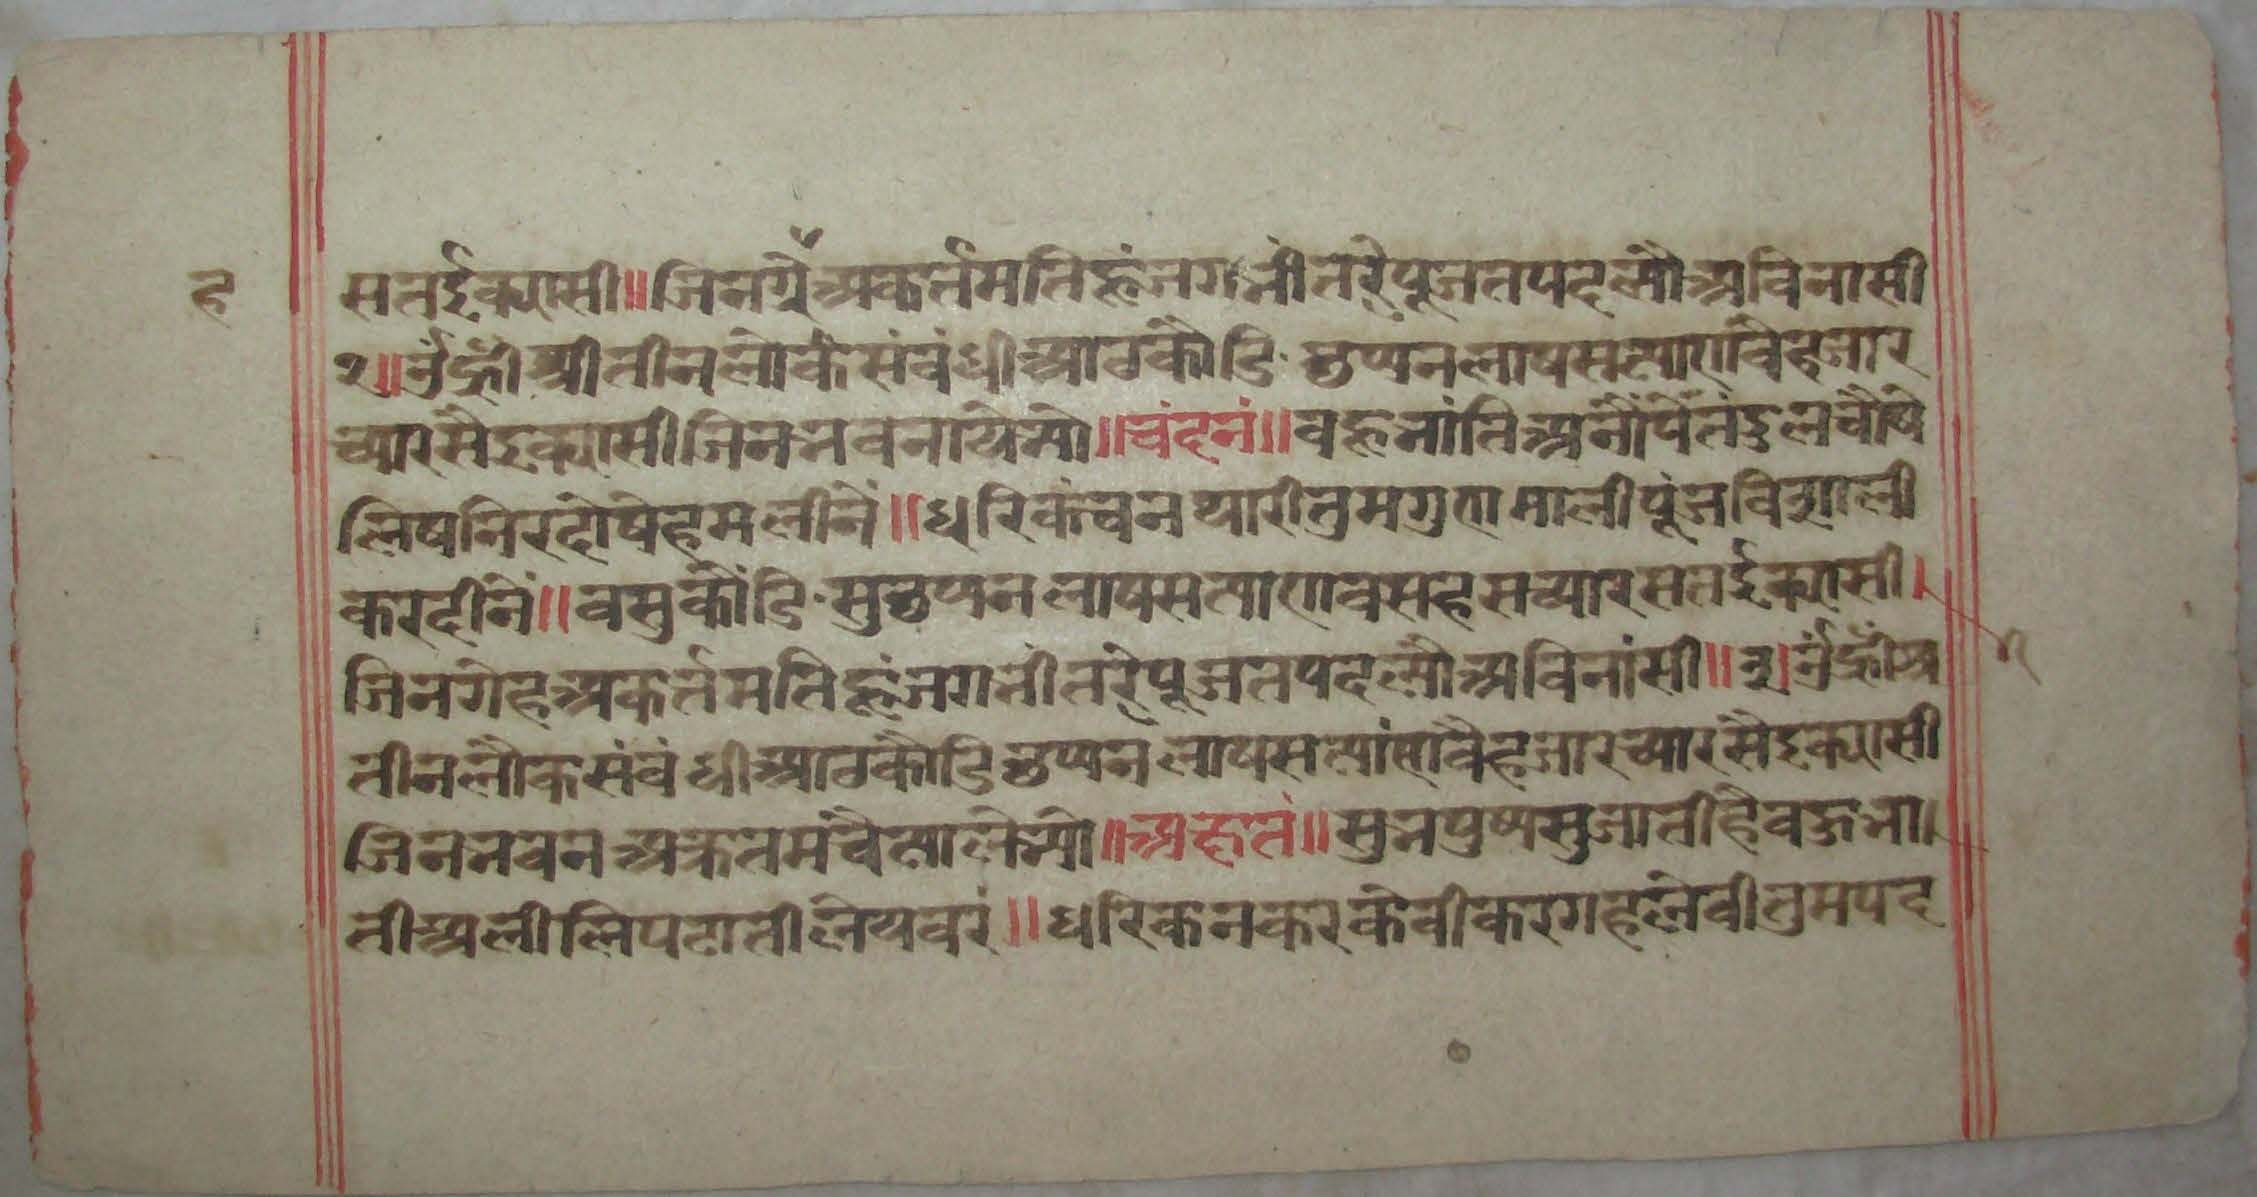 ह सतईक्यासी॥जिनग्रेहअकर्तमतिहूंजगभींतरेपूजतपदल्योअविनासी
२॥ॐह्रींश्रीतीनलोकसंबंधीआठकोडिछप्पनलाषसत्याणवैहजार
च्यारसैइक्यासीजिनभवनायेभ्यो॥चंदनं॥बहुभांतिअनौंपेतंडुलचौषे
लिषनिरदोषेहमलीनें॥धरिकंचनथारीतुमगुणमालीपूंजविशाली
करदीनें॥वसुकोंडिसुछप्पनलाषसत्याणवसहसच्यारसतईक्यासी।
जिनगेहअकर्तमतिहूंजगभींतरेपूजतपदल्योअविनांसी॥३।ॐह्रींश्र
तीनलौकसंबंधीआठकौडिछप्पनलाषसत्यांणवैहजारच्यारसैइक्यासी
जिनभवनअक्रतमचैत्यालेभ्यो॥अक्षतं॥सुभपुष्पसुजातीहैवऊभा।
तीअलीलिपटातीलेयवरं॥धरिकनकरकेवीकरगहलेवीतुमपद